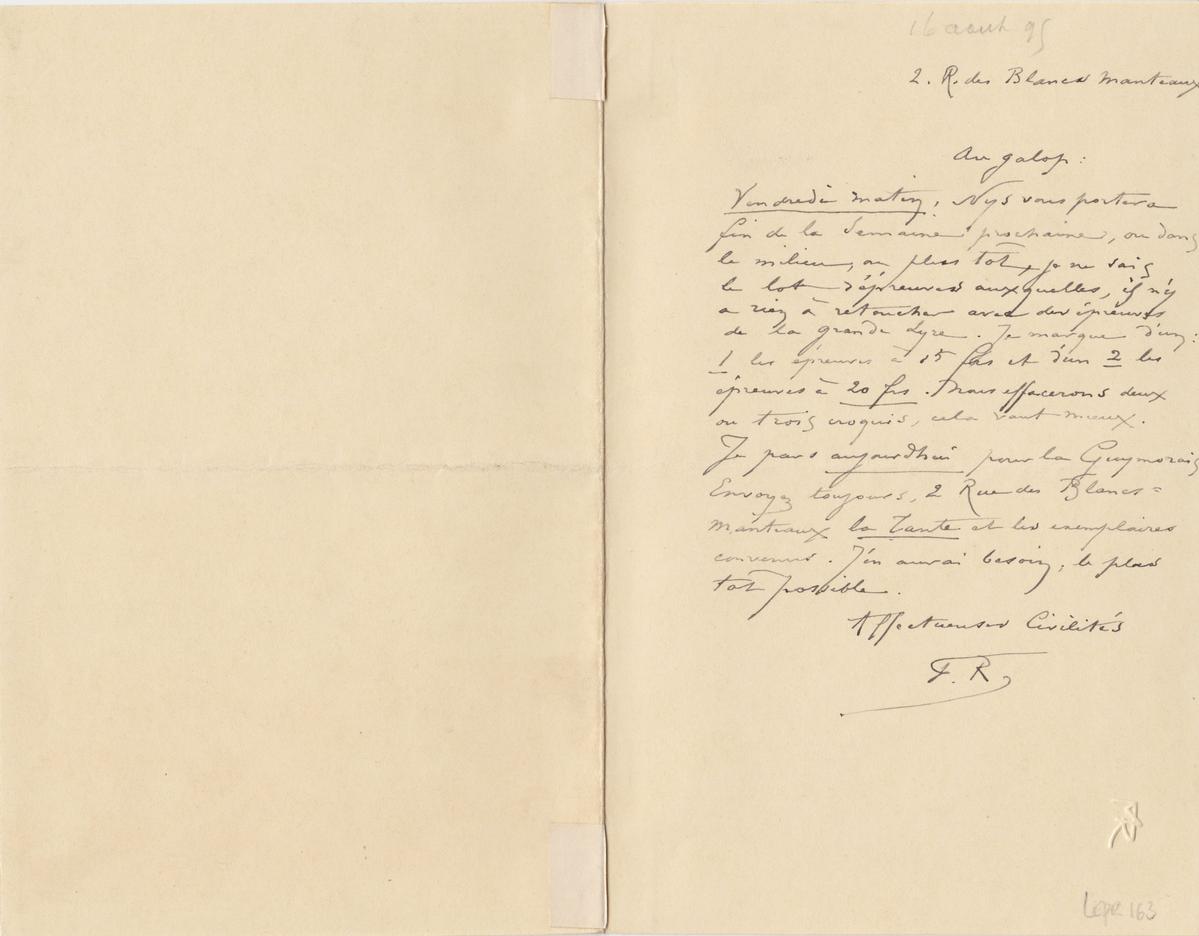 16 aout 95
2. R. des Blancs Manteaux
Au galop:
Vendredi matin, Nys vous portera
fin de la semaine prochaine, ou dans
le milieu, ou plus tôt, je ne sais
le lot d'épreuves auxquelles, il n'y
a rien à retoucher avec des épreuves
de la grande Lyre. Je marque d'un:
1 les épreuves à 15 frs et d'un 2 les
épreuves à 20 frs. Nous effacerons deux
ou trois croquis, cela vaut mieux.
Je pars aujourdhui pour la Guymorais
Envoyez toujours, 2 Rue des Blancs=
Manteaux la Tante et les exemplaires
convenus. J'en aurai besoin, le plus
tôt possible.
Affectueuses Civilités
F. R.
LEPR 163